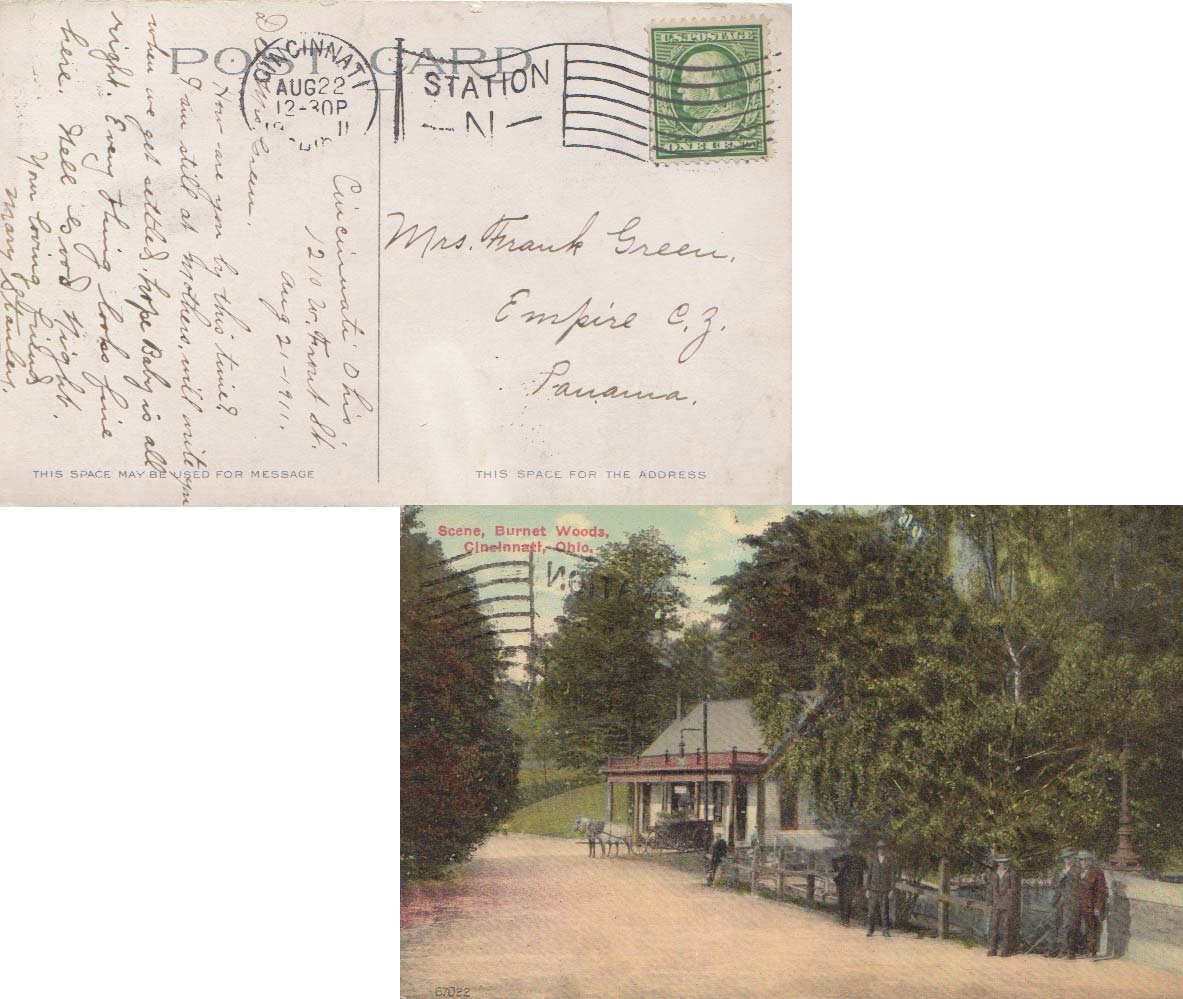 POST CARD
CINCINNATI
AUG 22
12-30P
11
STATION
N
U.S. POSTAGE
ONE CENT
Cincinnati Ohio
1210 W. Front St.
Aug 21-1911.
Dear Mrs. Green.
How are you by this time?
I am still at Mothers, will write you
when we get settled, hope Baby is all
right. Every thing looks fine
here. Well Good Night.
Your loving friend
Mary Stanley.
Mrs. Frank Green.
Empire C.Z.
Panama.
THIS SPACE MAY BE USED FOR MESSAGE
THIS SPACE FOR THE ADDRESS
Scene, Burnet Woods,
Cincinnati, Ohio.
67022